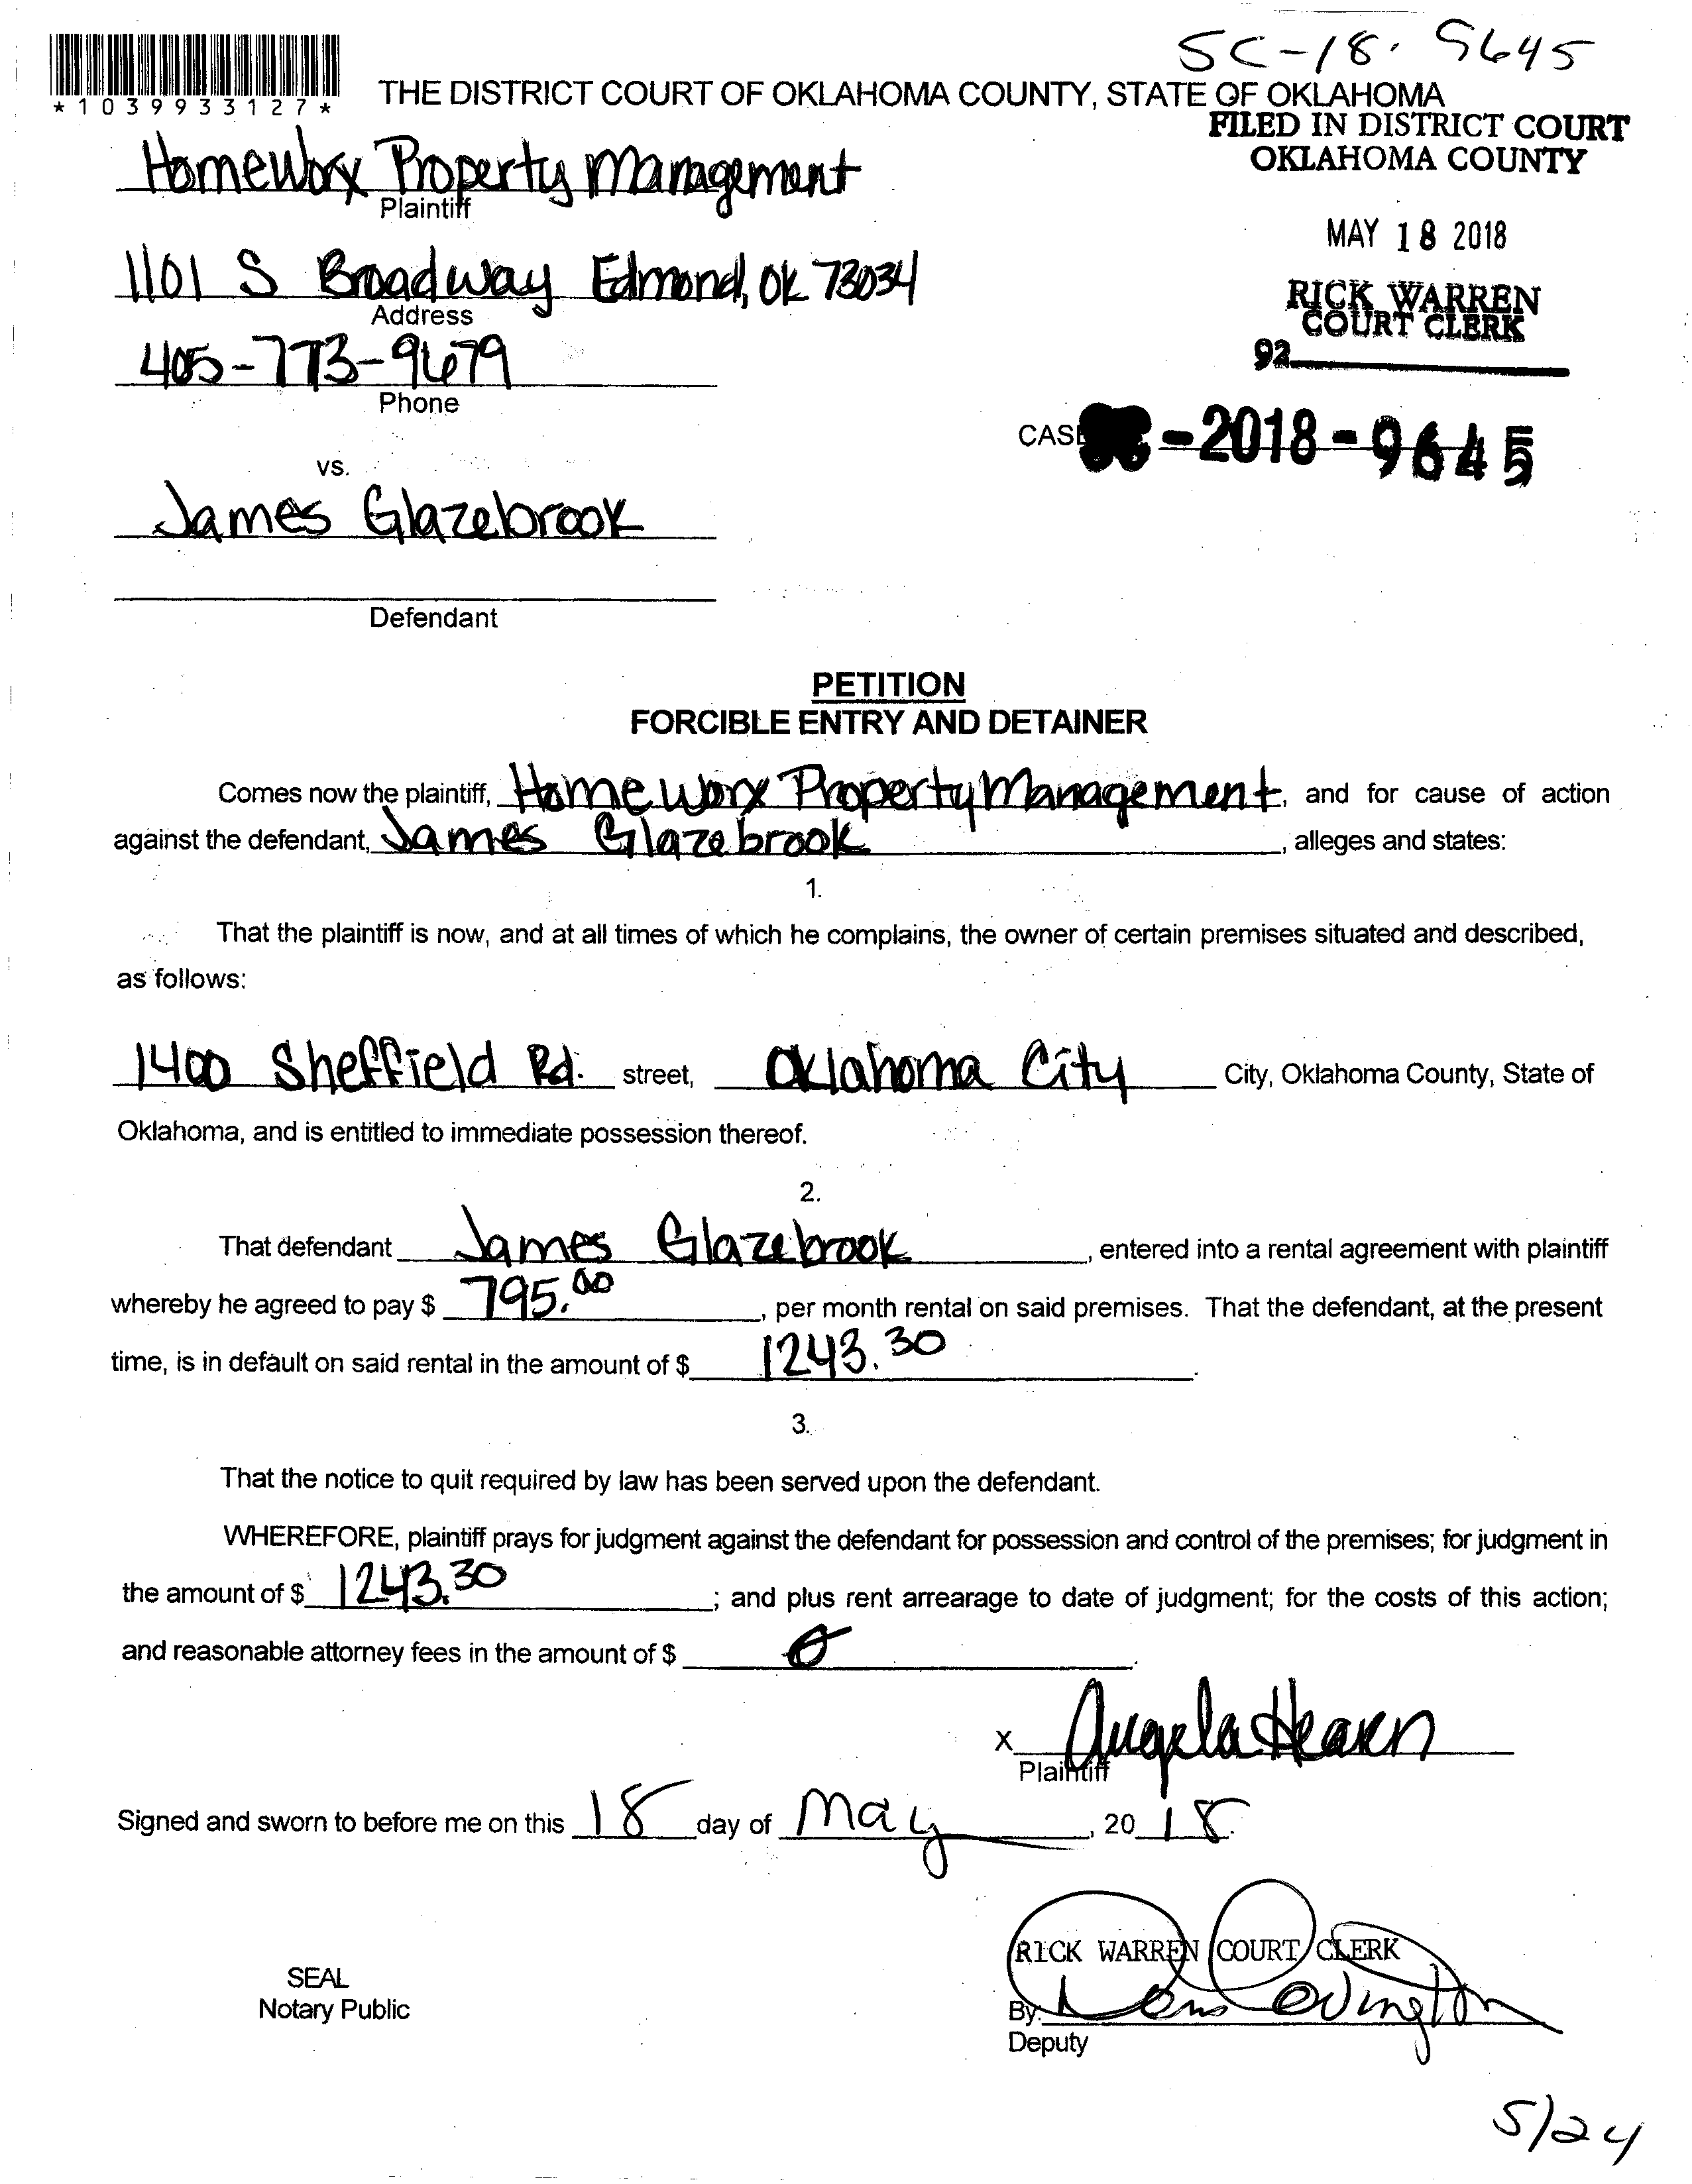 SC-18-9645
*1039933127*
THE DISTRICT COURT OF OKLAHOMA COUNTY, STATE OF OKLAHOMA
FILED IN DISTRICT COURT
OKLAHOMA COUNTY
Homeworx Property Management
Plaintiff
MAY 18 2018
1101 S Broadway Edmond, OK 73034
Address
RICK WARREN
COURT CLERK
92
405-773-9679
Phone
CASE SC-2018-9645
vs.
James Glazebrook
Defendant
PETITION
FORCIBLE ENTRY AND DETAINER
Comes now the plaintiff, Homeworx Property Management, and for cause of action
against the defendant, James Glazebrook, alleges and states:
1.
That the plaintiff is now, and at all times of which he complains, the owner of certain premises situated and described,
as follows:
1400 Sheffield Rd. street, Oklahoma City City, Oklahoma County, State of
Oklahoma, and is entitled to immediate possession thereof.
2.
That defendant James Glazebrook, entered into a rental agreement with plaintiff
whereby he agreed to pay $ 795.00, per month rental on said premises. That the defendant, at the present
time, is in default on said rental in the amount of $ 1243.30.
3.
That the notice to quit required by law has been served upon the defendant.
WHEREFORE, plaintiff prays for judgment against the defendant for possession and control of the premises; for judgment in
the amount of $ 1243.30; and plus rent arrearage to date of judgment; for the costs of this action;
and reasonable attorney fees in the amount of $ 0.
X Angela Hearn
Plaintiff
Signed and sworn to before me on this 18 day of May, 2018.
RICK WARREN COURT CLERK
SEAL
Notary Public
By: Covington
Deputy
5/24